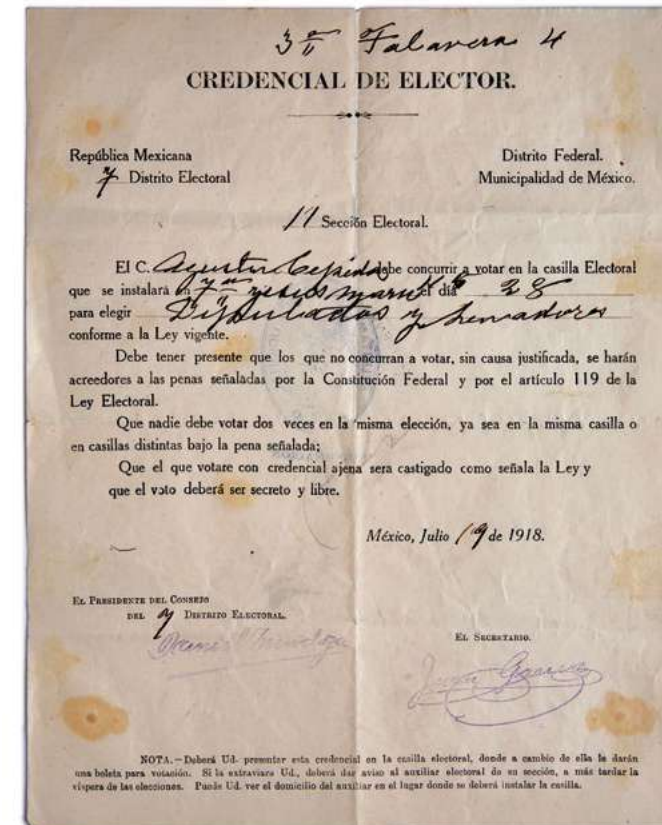 3ª Talavera 4
CREDENCIAL DE ELECTOR.
República Mexicana
7 Distrito Electoral
Distrito Federal.
Municipalidad de México.
11 Sección Electoral.
El C. Agustin Cepeda debe concurrir a votar en la casilla Electoral
que se instalará en 7ª el día 28
para elegir Diputados y Senadores
conforme a la Ley vigente.
Debe tener presente que los que no concurran a votar, sin causa justificada, se harán
acreedores a las penas señaladas por la Constitución Federal y por el artículo 119 de la
Ley Electoral.
Que nadie debe votar dos veces en la misma elección, ya sea en la misma casilla o
en casillas distintas bajo la pena señalada;
Que el que votare con credencial ajena sera castigado como señala la Ley y
que el voto deberá ser secreto y libre.
México, Julio 19 de 1918.
EL PRESIDENTE DEL CONSEJO
DEL 7 DISTRITO ELECTORAL.
EL SECRETARIO.
NOTA.—Deberá Ud. presentar esta credencial en la casilla electoral, donde a cambio de ella le darán
una boleta para votación. Si la extraviare Ud., deberá dar aviso al auxiliar electoral de su sección, a más tardar la
víspera de las elecciones. Puede Ud. ver el domicilio del auxiliar en el lugar donde se deberá instalar la casilla.